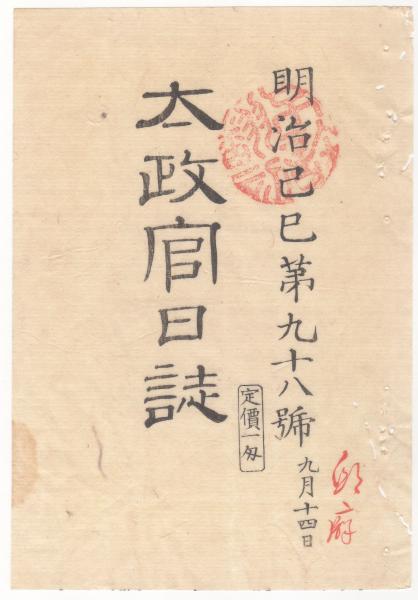 明治己巳第九十八號
九月十四日
太政官日誌
定價一匁